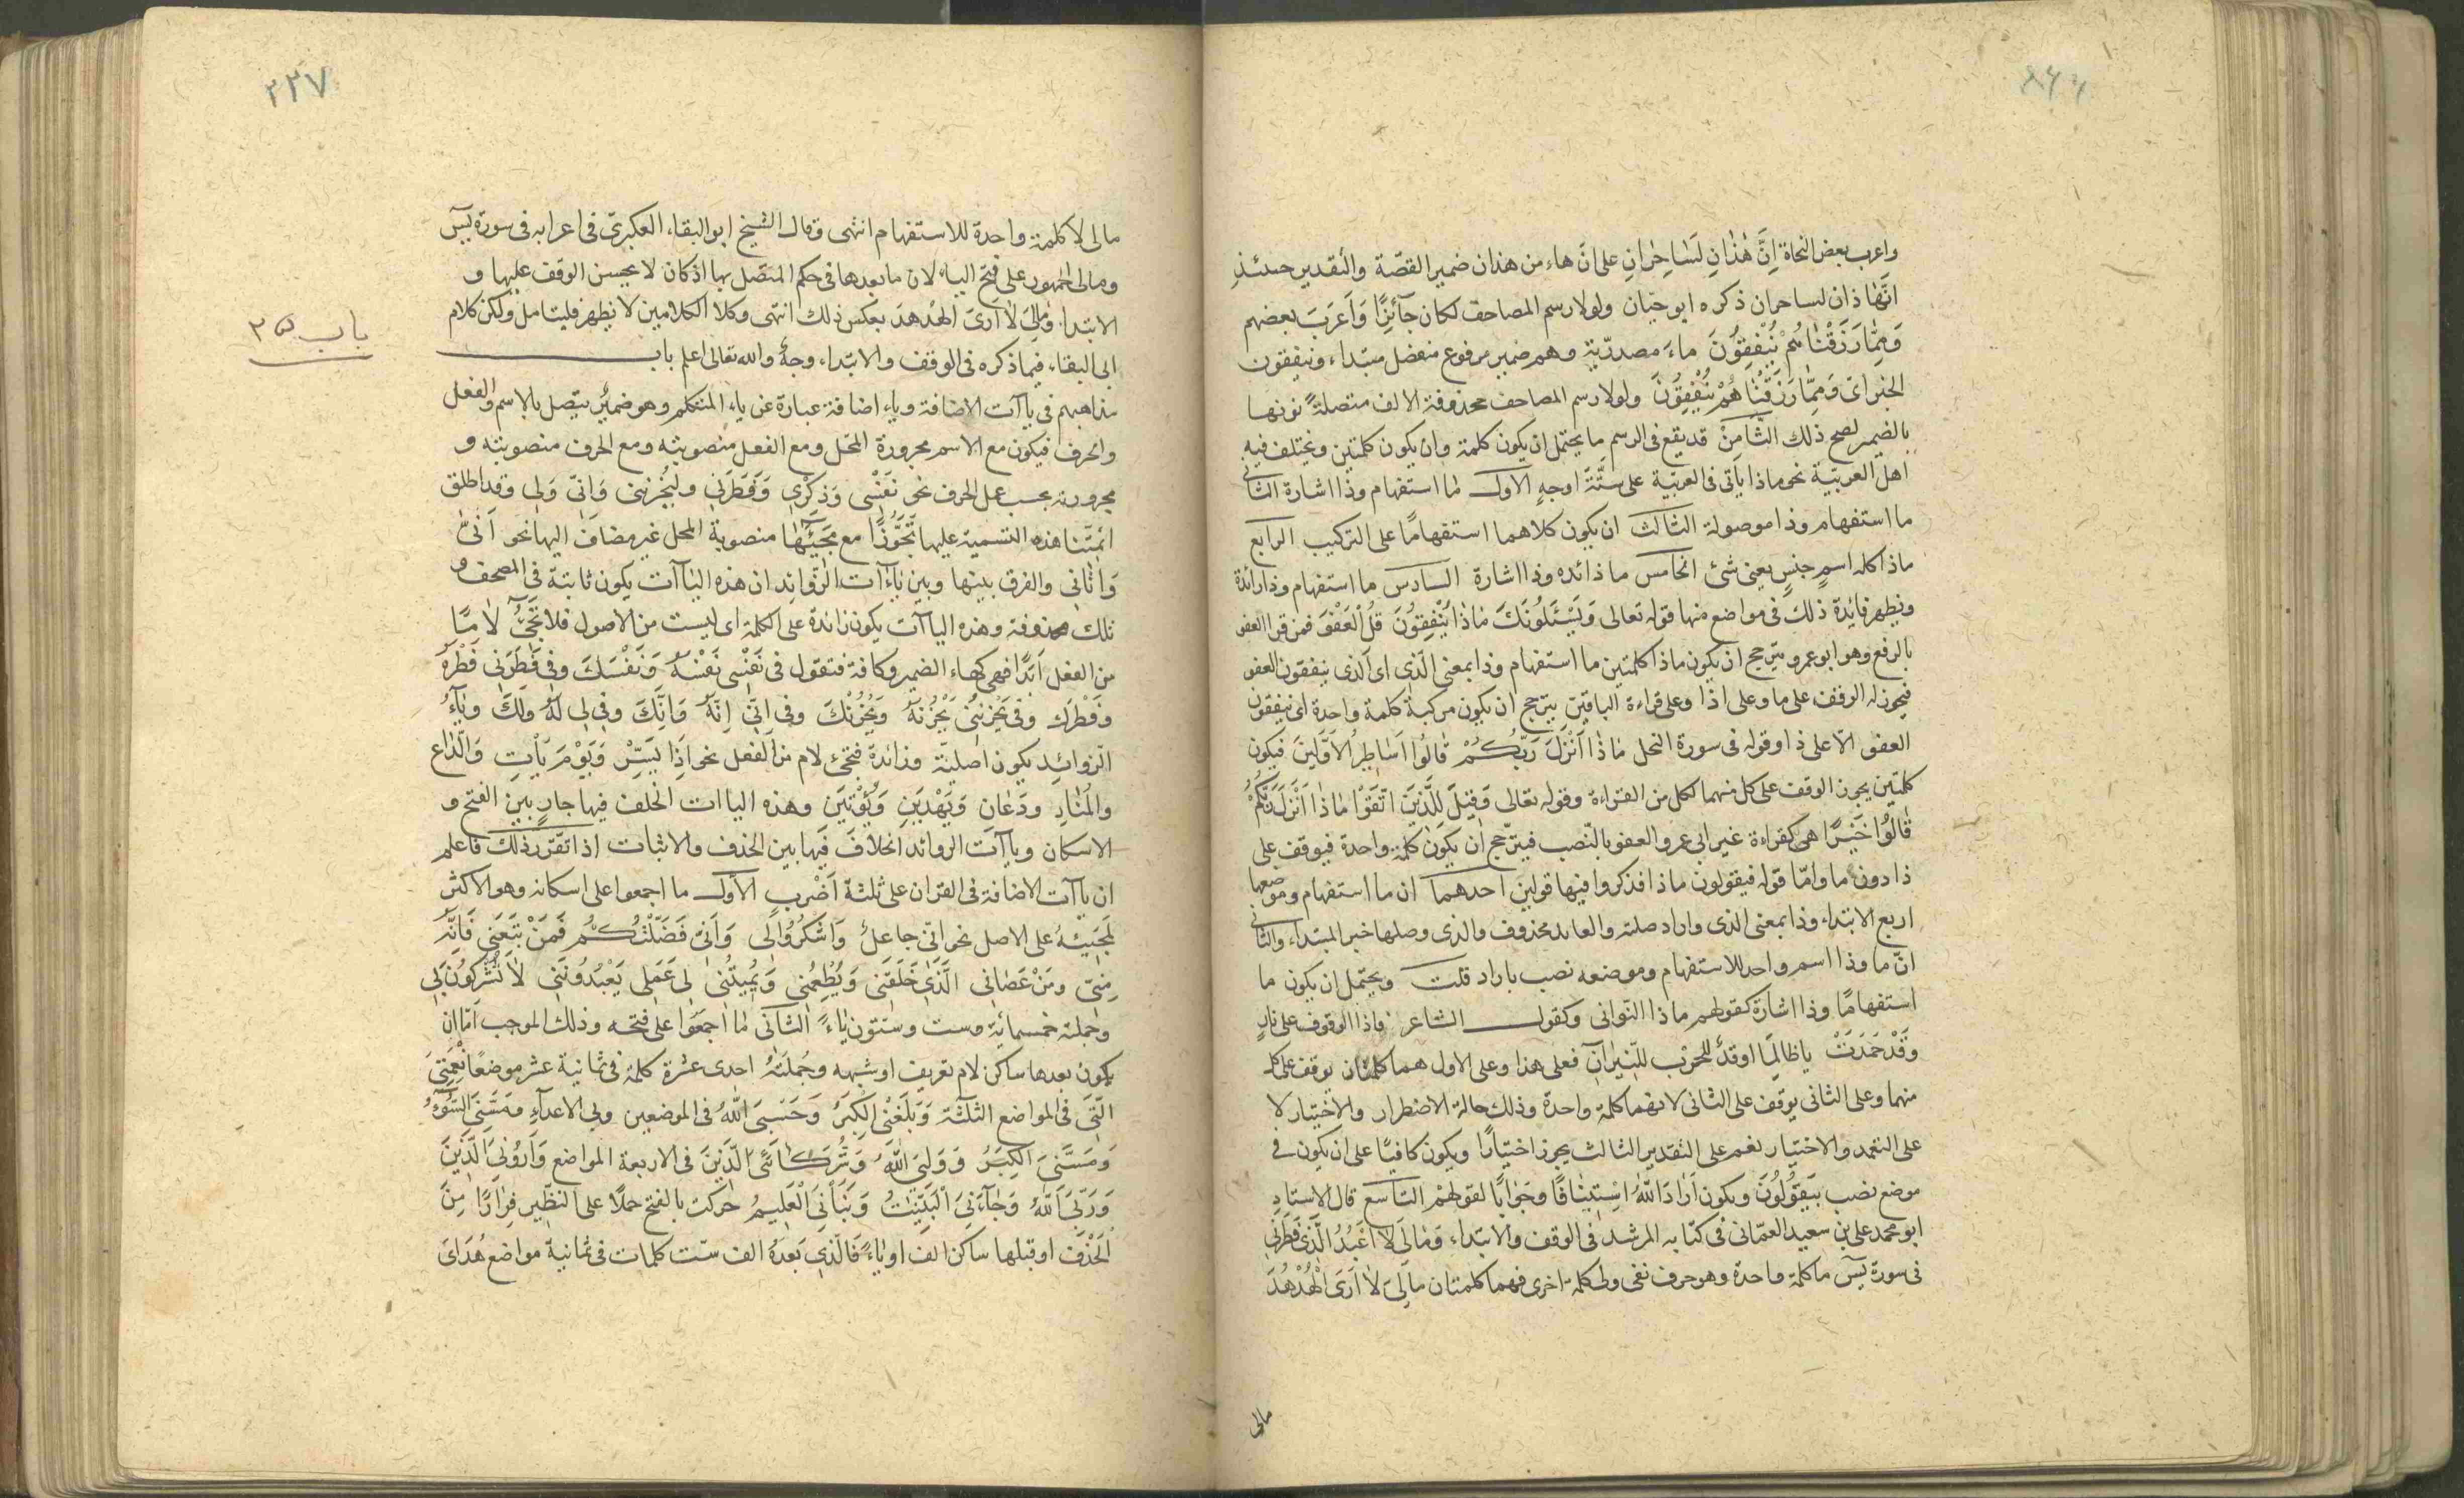 واعرب بعض النحاة اِنَّ هٰذٰانِ لَسٰاحِرٰانِ على انّ هاء من هذان ضمير القصّة والتقدير حينئذِ
انّها ذان لساحران ذكره ابو حيّان ولولا رسم المصاحف لكان جآئزًا وَاَعرَبَ بعضهم
وَمِمّٰا رَزَقْنٰاهُمْ يُنْفِقُونَ ماءَ مصدريّة وهم ضمير مرفوع منفصل مبتداء وينفقون
الخبر اى وَمِمّٰا رَزَقْنٰا هُمْ يُنْفِقُونَ ولولا رسم المصاحف محذوفة الالف متصلةً نونها
بالضمير لصح ذلك الثَّامِنْ قد يقع فى الرسم ما يحتمل ان يكون كلمة وان يكون كلمتين ويختلف فيه
اهل العربيّة نحو ماذا ياتى فى العربيّة على ستّة اوجهٍ الاول ما استفهام وذا اشارة الثانى
ما استفهام وذا موصولة الثالث ان يكون كلاهما استفهامًا على التركيب الرابع
ماذا كله اسم جنسٍ يعنى شئ الخامس ما ذائده وذا اشارة السادس ما استفهام وذا زائدة
ويظهر فايدة ذلك فى مواضع منها قوله تعالى وَيَسْئَلُونَكَ مٰاذٰا يُنْفِقُونَ قُلِ الْعَفْوَ فمن قرا العفو
بالرفع وهو ابو عمرو يترجح ان يكون ماذا كلمتين ما استفهام وذا بمعنى الّذى اى الّذى ينفقون العفو
فيجوز له الوقف على ما وعلى اذا وعلى قراءة الباقين يترجح ان يكون مركبة كلمة واحدة اى ينفقون
العفو الّا على ذا وقوله فى سورة النحل مٰاذٰا اَنْزَلَ رَبُّكُمْ قٰالُوا اَسٰاطِيرُ الْاَوَّلِينَ فيكون
كلمتين يجوز الوقف على كل منهما لكل من القراءة وقوله تعالى وَقِيلَ لِلَّذِينَ اتَّقَوْا مٰاذٰا اَنْزَلَ رَبُّكُمْ
قٰالُوا خَيْرًا هى كقراءة غير ابى عمرو العفو بالنّصب فيترجّح ان يكون كلمة واحدة فيوقف على
ذا دون ما وامّا قوله فيقولون ماذا فذكروا فيها قولين احدهما ان ما استفهام وموضعها
اربع الابتداء وذا بمعنى الذى واراد صلته والعايد محذوف والذى وصلها خبر المبتداء والثانى
انّ ما وذا اسم واحد للاستفهام وموضعه نصب باراد قلت ويحتمل ان يكون ما
استفهامًا وذا اشارة كقولهم ماذا التوانى وكقول الشاعر ماذا الوقوف على نارٍ
وَقَدْ خَمَدَتْ ياظالِمًا اوقدُ للحرْب للنّيرٰانِ فعلى هذا وعلى الاول هما كلمتان يوقف على كل
منهما وعلى الثانى يوقف على الثانى لانهما كلمة واحدة وذلك حالة الاضطرار والاختبار لا
على التعمد والاختيار نعم على التقدير الثالث يجوز اختيارًا ويكون كافيًا على ان يكون فى
موضع نصب بِيَقُولُونَ ويكون اَرٰادَ اللّٰهُ اِسْتِينٰافًا وجَوٰابًا لقولهمْ التاسع قال الاستادِ
ابو محمد على بن سعيد العمّانى فى كتابه المرشد فى الوقف والابتداء وَمٰالِىَ لٰا اَعْبُدُ الَّذِى فَطَرَنِى
فى سورة يسۤ ما كلمة واحدة وهو حرف نفى ولى كلمة اخرى فهما كلمتان مٰالِىَ لٰا اَرَى الْهُدْهُدَ
مالى
٢٢٧
مالى لا كلمة واحدة للاستفهام انتهى وقال الشيخ ابو البقاء العكبرىّ فى اعرابه فى سورة يسۤ
ومالى الجمهور على فتح الياء لان ما بعدها فى حكم المتصل بها اذ كان لا يحسن الوقف عليها و
الابتدا وَمٰالِىَ لٰا اَرَىَ الهُدهدَ بعكس ذلك انتهى وكلا الكلامين لا يظهر فليتامل ولكن كلام
ابى البقاء فيما ذكره فى الوقف والابتداء وجهٌ والله تعالى اعلم باب
باب ٣٥
مذاهبهم فى ياآت الاضافة وياء اضافة عبارة عن ياء المتكلم وهو ضميرٌ يتصل بالاسم والفعل
والحرف فيكون مع الاسم مجرورة المحل ومع الفعل منصوبته ومع الحرف منصوبته و
مجرورته بحسب عمل الحرف نحو نَفْسى وَذِكْرِى وَفَطَرَنِى وليُحْزِنِنى وَاِنّى وَلِى وقد اطلق
ائمتنا هذه التسمية عليها تَجَوُّزًا مع مَجِيْئِهٰا منصوبة المحل غير مضاف اليها نحو اَنّىٰ
وَاٰتٰانِى والفرق بينها وبين يٰاءآت الزّوائد ان هذه الياآت يكون ثابتة فى المصحف و
تلك محذوفة وهذه الياآت يكون زائدة على الكلمة اى ليست من الاصول فلا تجئُ لاٰمًا
من الفعل اَبَدًا فهى كهاء الضمير وكافه فتقول فى نَفْسى نَفْسَهُ وَنَفْسَكَ وفى فَطَرَنى فَطَرَهُ
وَفَطَرَكَ وفى يَحْزُنُنِىُ يَحْزُنُهُ وَيَحْزُنُكَ وفى اِنّى اِنَّهُ وَاِنَّكَ وفى لِى لَهُ وَلَكَ ويٰاءُ
الزوائدِ يكون اصليّة وزائدة فتجئ لام من الفعل نحو اِذٰا يَسْرِ وَيَوْمَ يَأْتِ وَالدّٰاعِ
والمُنٰادِ ودَعٰانِ وَيَهْدِيَنِ وَيُؤْتِيَنِ وهذه الياات الخلف فيها جارٍ بين الفتح و
الاسكان وياآت الزوائد الخلاف فيها بين الحذف والاثبات اذا تقرّر ذلك فاعلم
ان ياآت الاضافة فى القرٰان على ثلثة اَضْرب الاول ما اجمعوا على اسكانه وهو الاكثر
لمجيئهُ على الاصل نحو انّى جاعلٌ وَاشْكُرُوا لِى وَاَنّى فَضَّلْتُكُمْ فَمَنْ تَبِعَنى فَاِنَّهُ
مِنّى ومَنْ عَصٰانى الَّذِى خَلَقَنى وَيُطْعِمُنى وَيُمِيتُنى لِى عَمَلى يَعْبُدُونَنى لٰا يُشْرِكُونَ بِى
وجملة خمسمائة وست وستّون ياءً الثانى مٰا اَجمَعُوا على فتحه وذلك الموجب امّا ان
يكون بعدها ساكن لام تعريف او شبهه وجُملتهُ احدى عشرة كلمة فى ثمانية عشر موضعًا نِعْمَتِىَ
الَّتِىَ فى المواضع الثلثة وَبَلَغَنِىَ الْكِبَرُ وَحَسْبِىَ اللّٰهُ فى الموضعين وبى الاعدآءِ ومَسَّنِىَ السُّوءُ
وَمَسَّنِىَ الْكِبَرُ وَوَلِيّىَ اللّٰهُ وَشُرَكٰائِىَ الَّذِينَ فى الاربعة المواضع وَاَرُونِىَ الَّذِينَ
وَرَبِّىَ اللّٰهُ وَجٰاۤءَنِىَ الْبَيِّنٰاتُ وَنَبَّأَنِىَ الْعَلِيمُ حركت بالفتح حملًا على النظير فِرٰارًا مِنَ
الحَذْفِ او قبلها ساكن الف او ياءً فَالذى بَعدهُ الف ستّ كلمات فى ثمانية مواضع هُدَاىَ